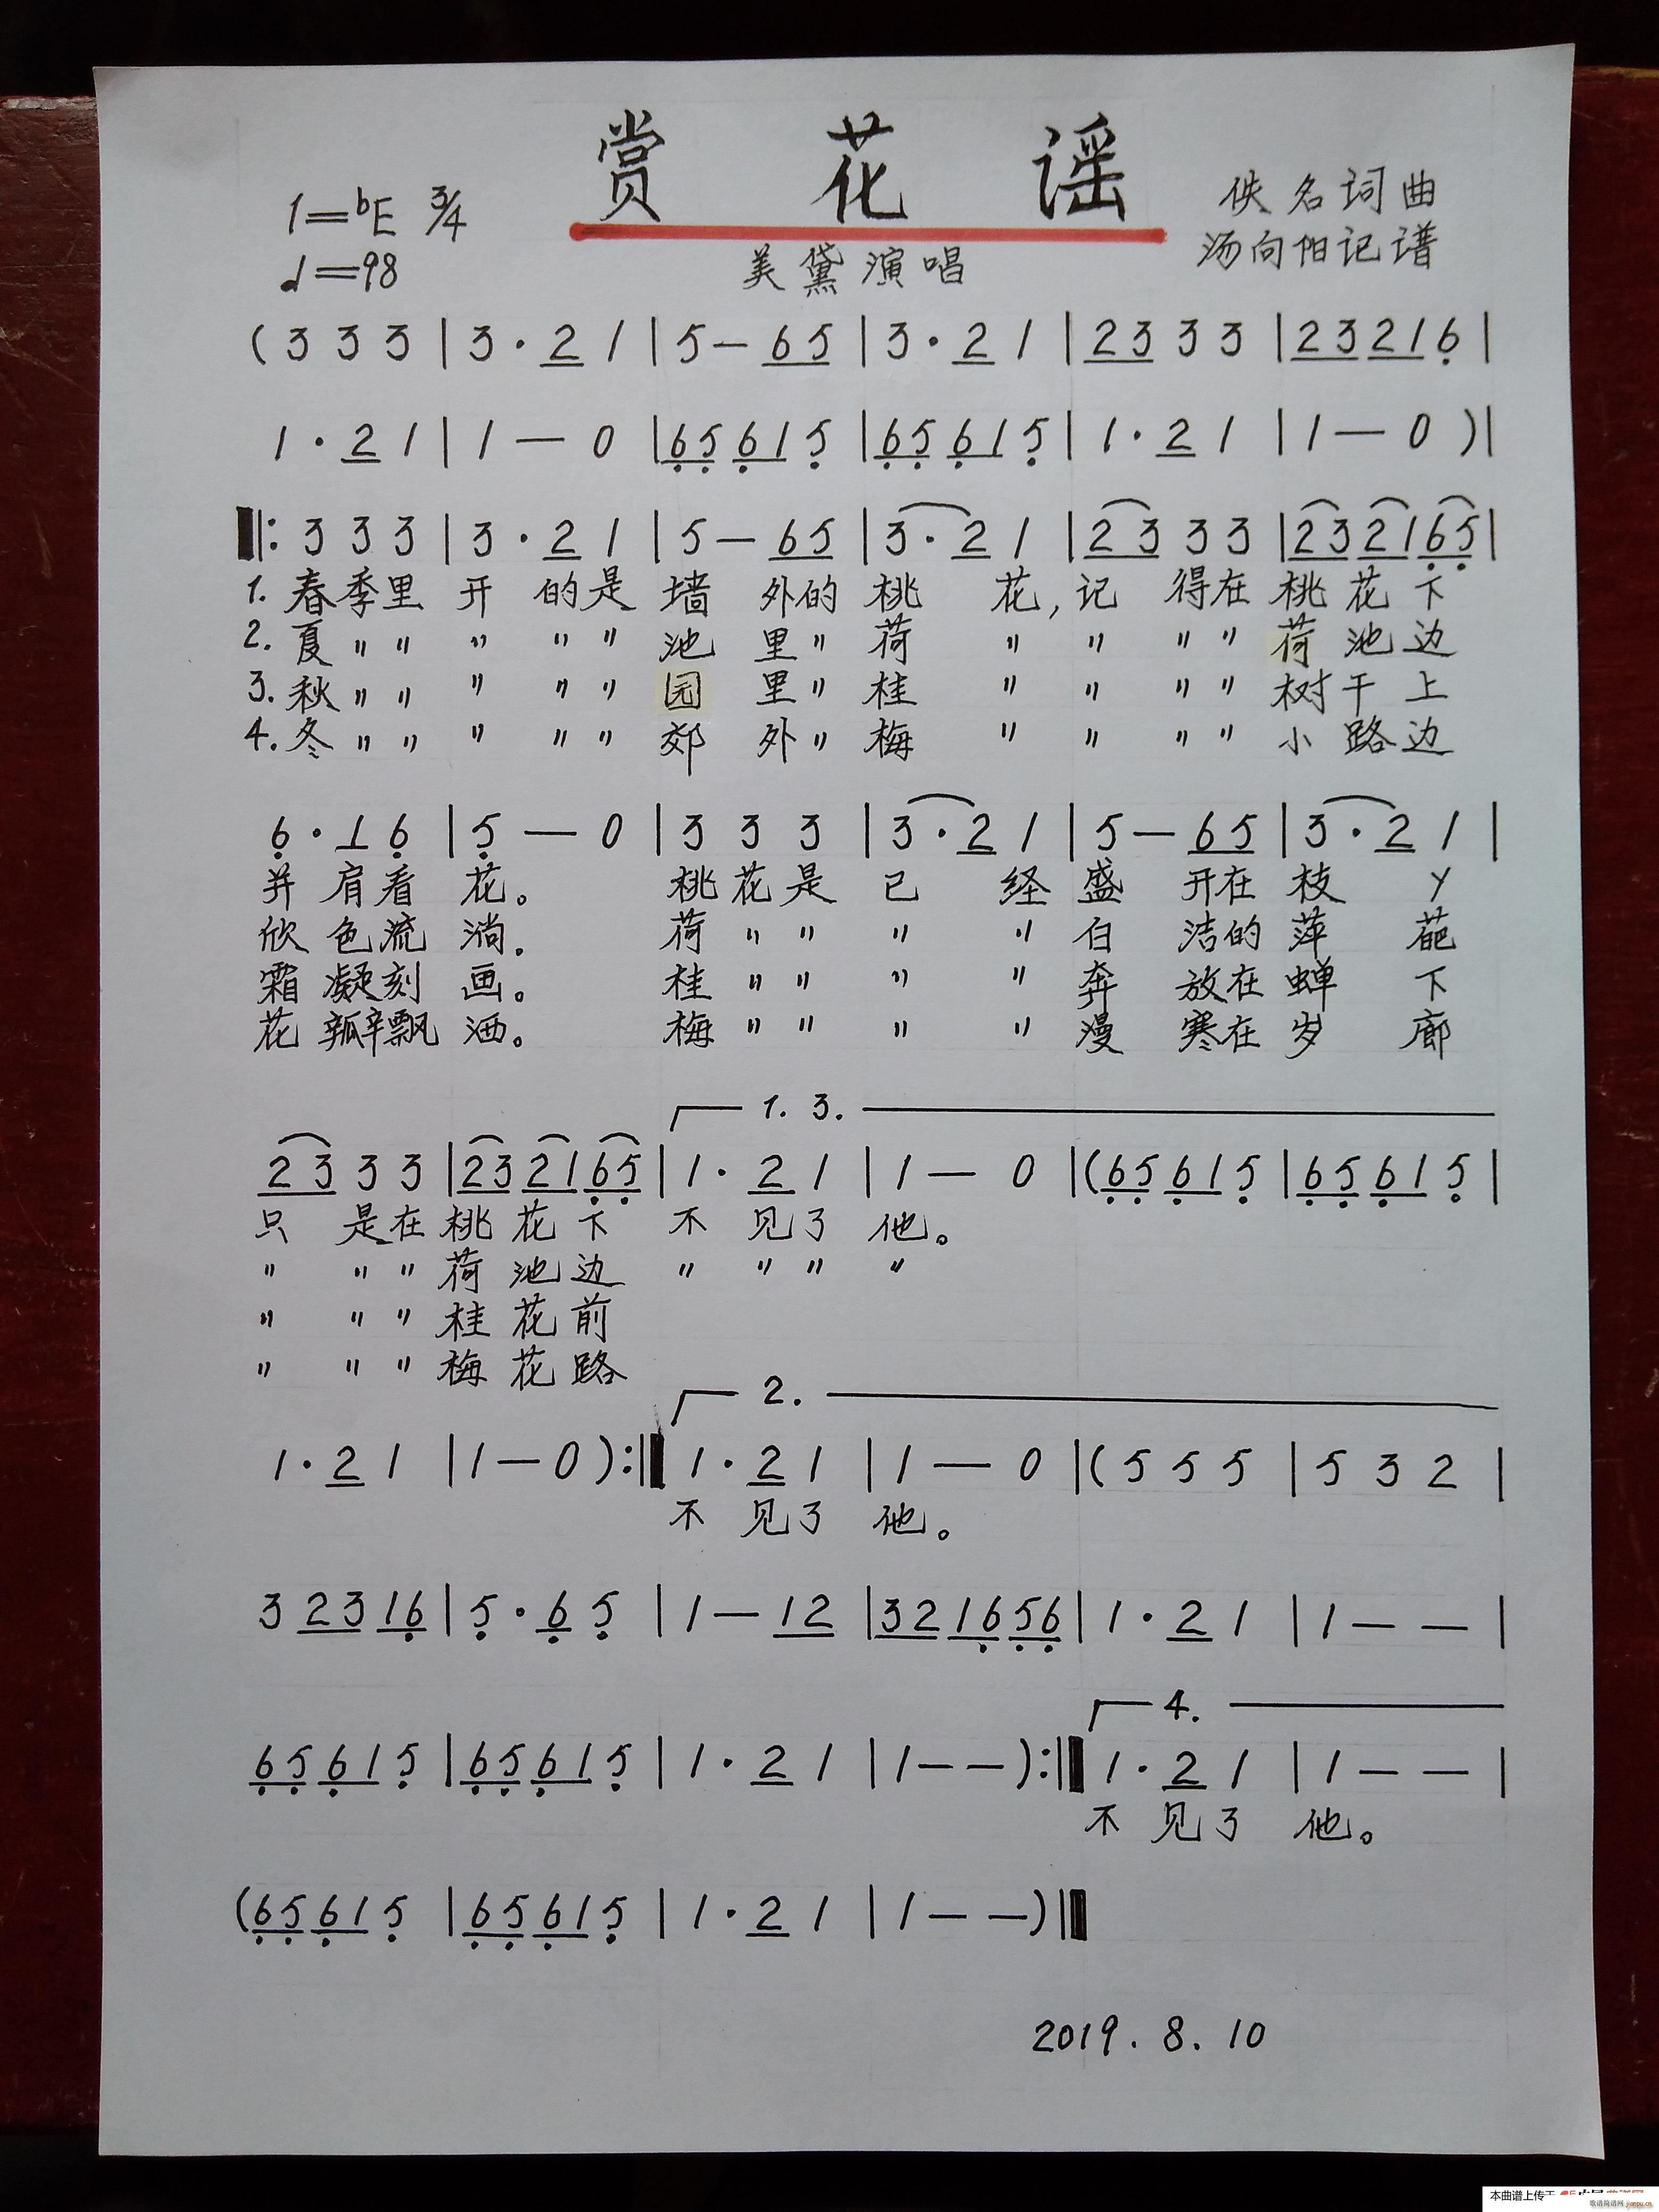 赏 花 谣
1=♭E 3/4
佚名词曲
♩=98
美黛演唱
汤向阳记谱
(3 3 3 | 3 · 2 1 | 5 — 6 5 | 3 · 2 1 | 2 3 3 3 | 2 3 2 1 6 |
1 · 2 1 | 1 — 0 | 6 5 6 1 5 | 6 5 6 1 5 | 1 · 2 1 | 1 — 0 )|
‖: 3 3 3 | 3 · 2 1 | 5 — 6 5 | 3 · 2 1 | 2 3 3 3 | 2 3 2 1 6 5 |
1. 春季里 开 的是 墙 外的 桃 花, 记 得在 桃 花 下
2. 夏 〃 〃 〃 〃 〃 池 里 〃 荷 〃 〃 〃 〃 荷 池 边
3. 秋 〃 〃 〃 〃 〃 园 里 〃 桂 〃 〃 〃 〃 树 干 上
4. 冬 〃 〃 〃 〃 〃 郊 外 〃 梅 〃 〃 〃 〃 小 路 边
6 · 1 6 | 5 — 0 | 3 3 3 | 3 · 2 1 | 5 — 6 5 | 3 · 2 1 |
并 肩看 花。 桃 花 是 已 经 盛 开在 枝 丫
欣 色流 淌. 荷 〃 〃 〃 〃 白 洁的 萍 葩
霜 凝刻 画。 桂 〃 〃 〃 〃 奔 放在 蝉 下
花 瓣飘 洒。 梅 〃 〃 〃 〃 漫 寒在 岁 廊
1. 3.
2 3 3 3 | 2 3 2 1 6 5 | 1 · 2 1 | 1 — 0 |(6 5 6 1 5 | 6 5 6 1 5 |
只 是在 桃 花 下 不 见了 他。
〃 〃 〃 荷 池 边 〃 〃 〃 〃
〃 〃 〃 桂 花 前
〃 〃 〃 梅 花 路
2.
1 · 2 1 | 1 — 0 ) :‖ 1 · 2 1 | 1 — 0 |( 5 5 5 | 5 3 2 |
不 见了 他。
3 2 3 1 6 | 5 · 6 5 | 1 — 1 2 | 3 2 1 6 5 6 | 1 · 2 1 | 1 — — |
4.
6 5 6 1 5 | 6 5 6 1 5 | 1 · 2 1 | 1 — — ) :‖ 1 · 2 1 | 1 — — |
不 见了 他。
(6 5 6 1 5 | 6 5 6 1 5 | 1 · 2 1 | 1 — — )‖
2019. 8. 10
本曲谱上传于